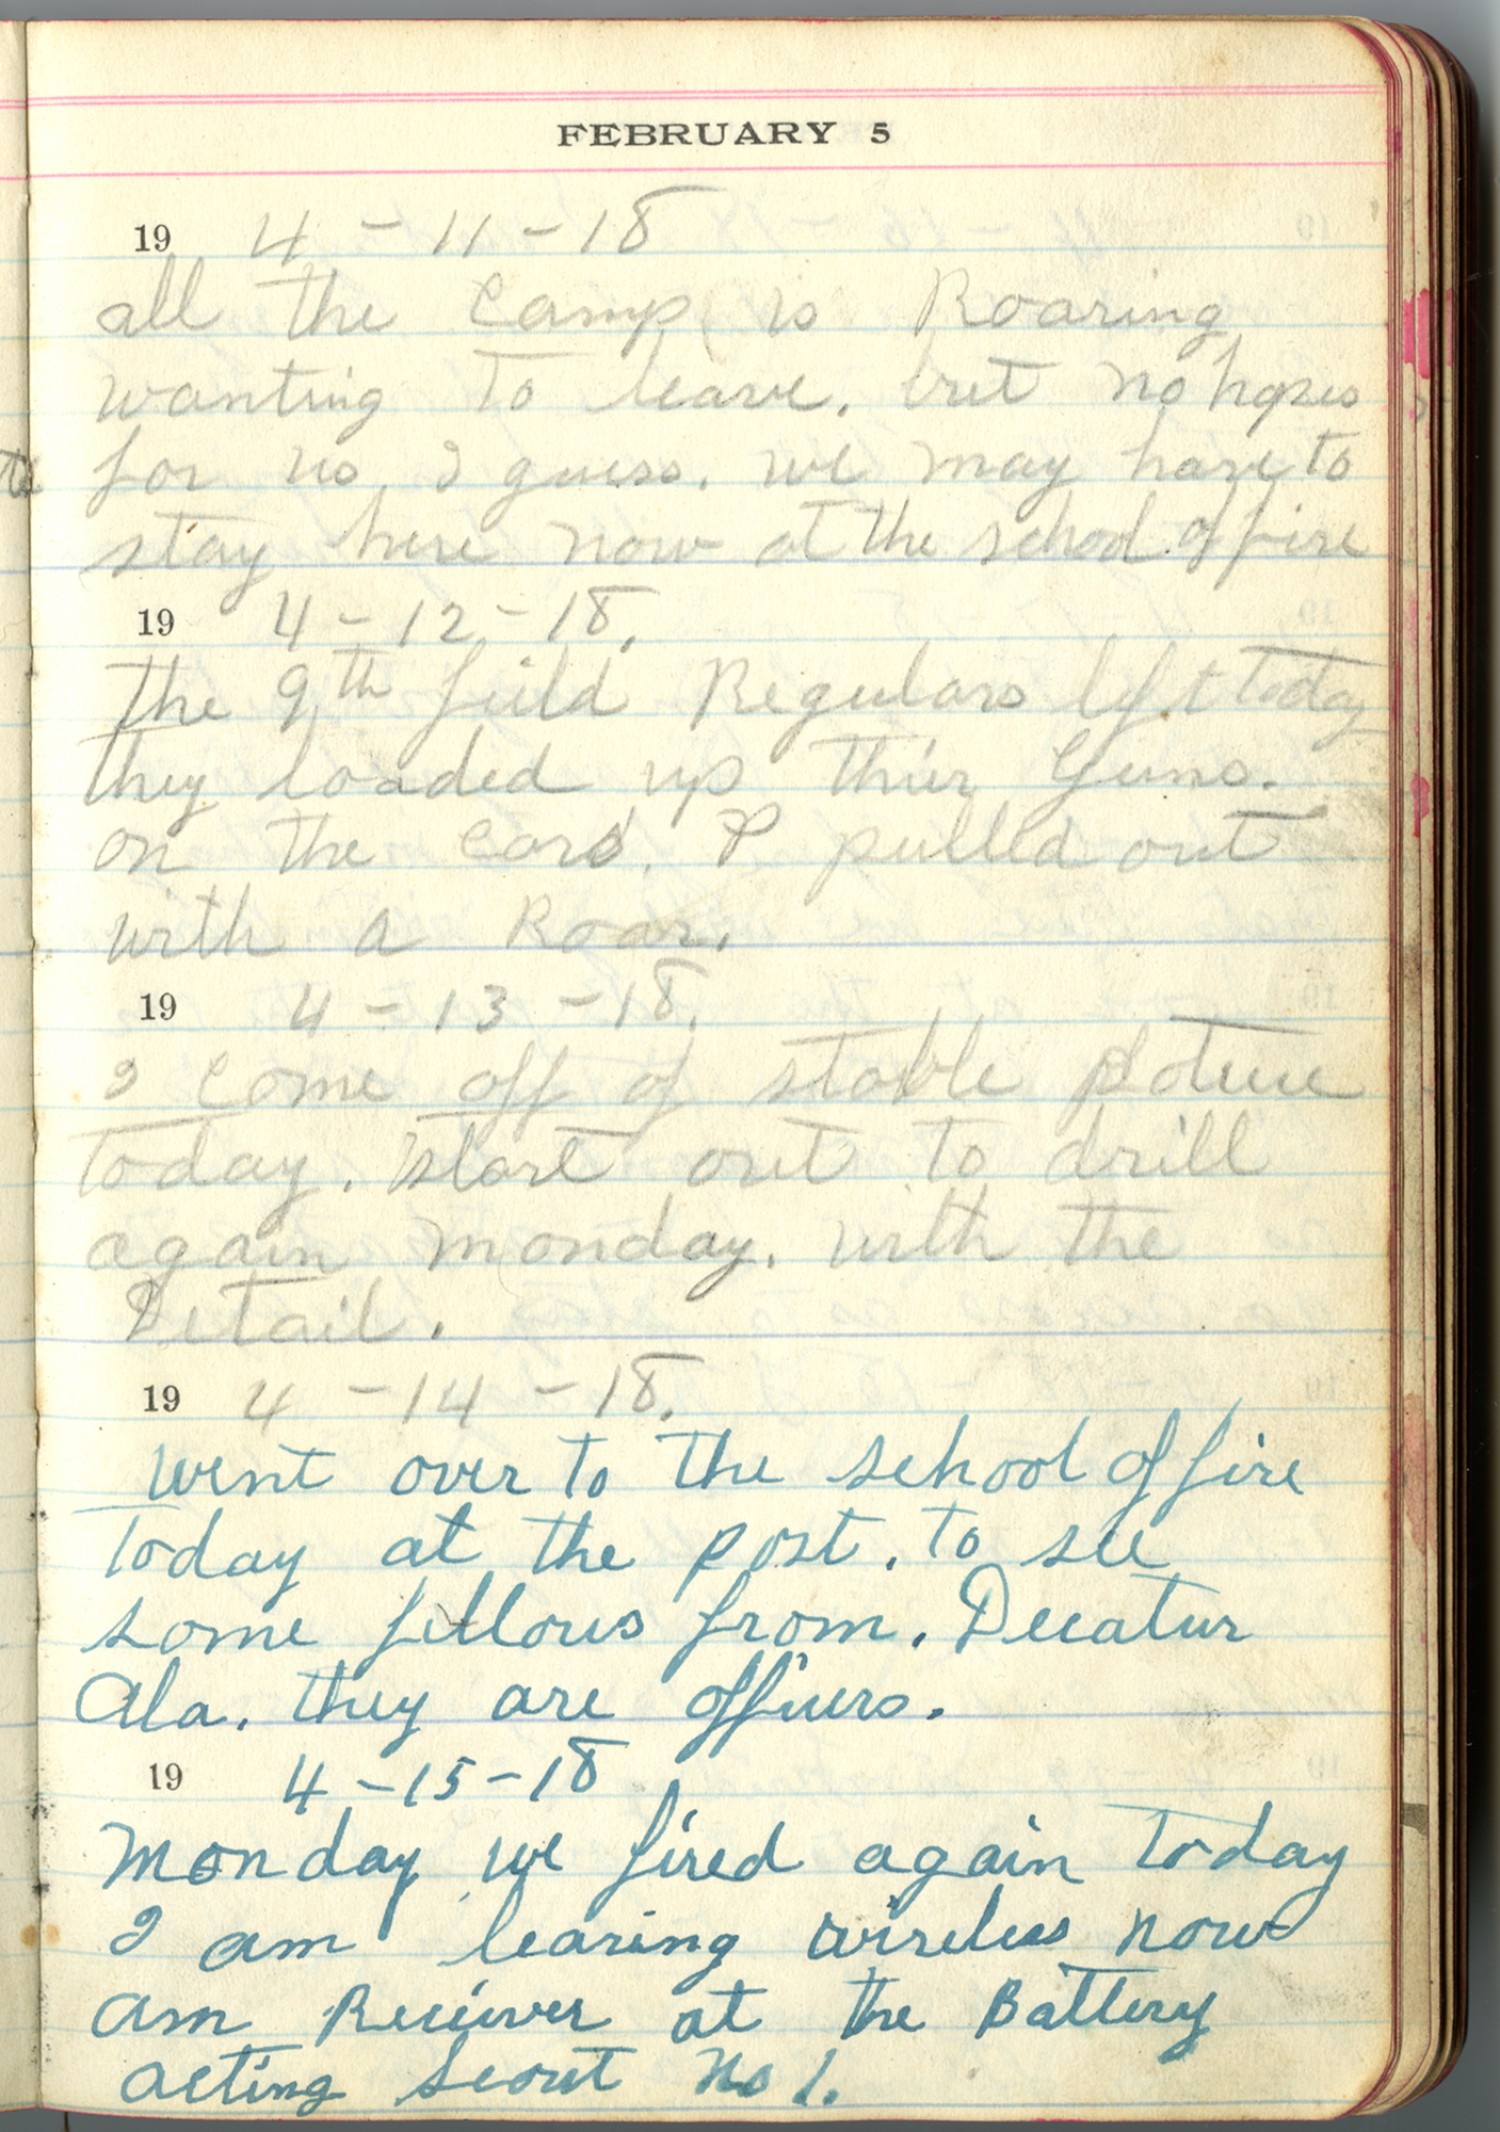 FEBRUARY 5
19 4-11-18
all the Camp is Roaring
wanting to leave. but no hopes
for us, I guess. we may have to
stay here now at the school of fire
19 4-12-18.
The 9th field Regulars left today
they loaded up thier Guns.
on the Cars. & pulled out
with a Roar.
19 4-13-18.
I come off of stable
today. start out to drill
again monday. with the
Detail.
19 4-14-18.
went over to the school of fire
today at the post. to see
some fellows from. Decatur
Ala. they are officers.
19 4-15-18
Monday we fired again today
I am learing wireless now
am Reciever at the Battery
acting scout No 1.